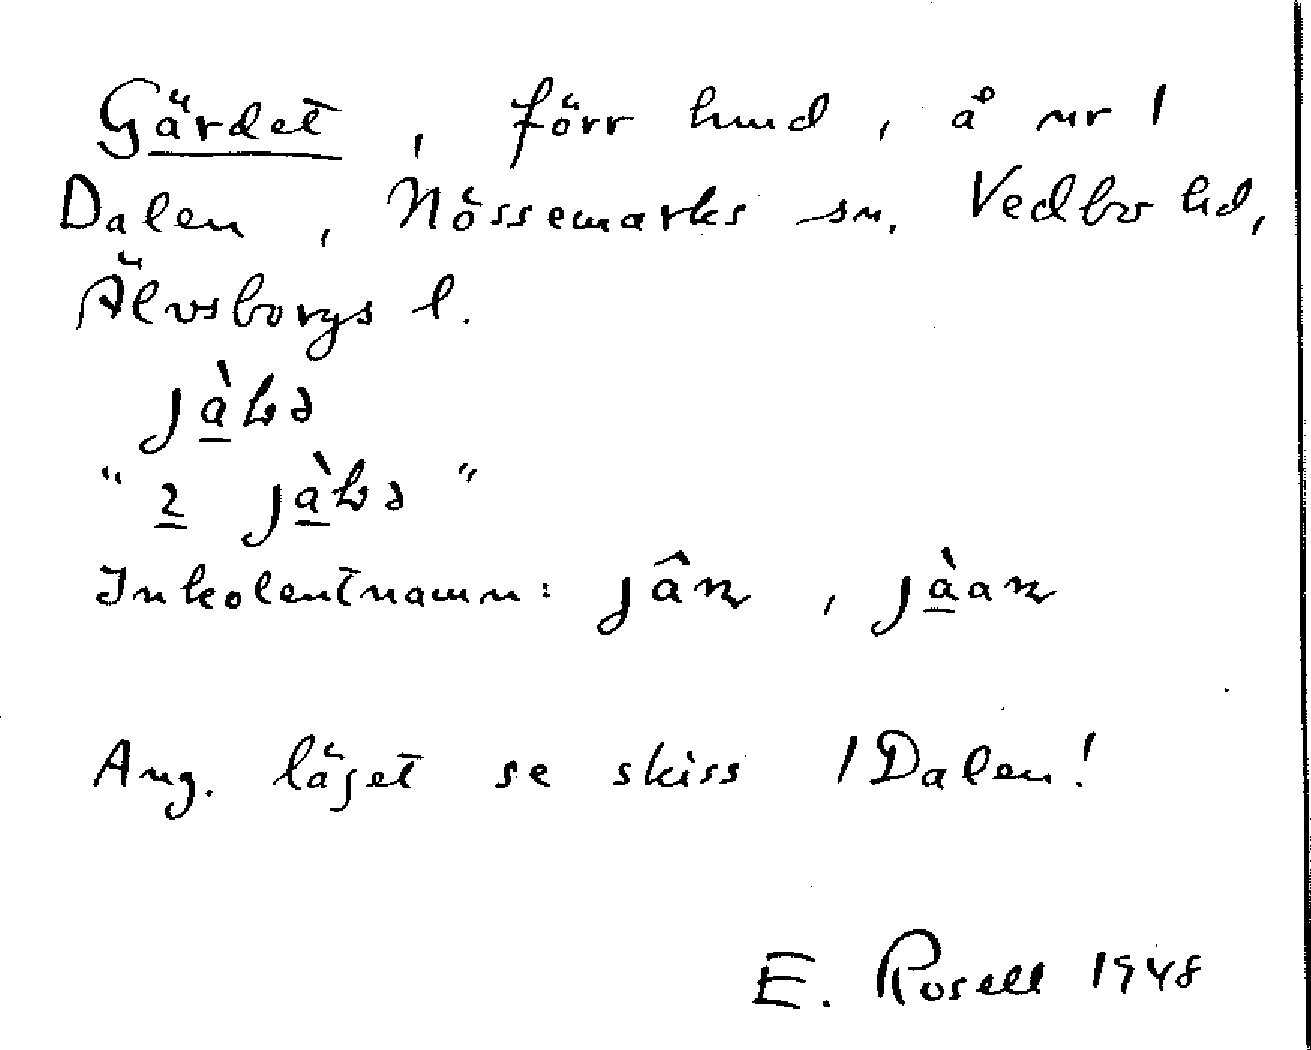 Gärdet, förr hmd, å nr 1
Dalen, Nössemarks sn, Vedbo hd,
Älvsborgs l.
Inkolentnamn:
Ang. läget se skiss 1 Dalen!
E. Rosell 1948